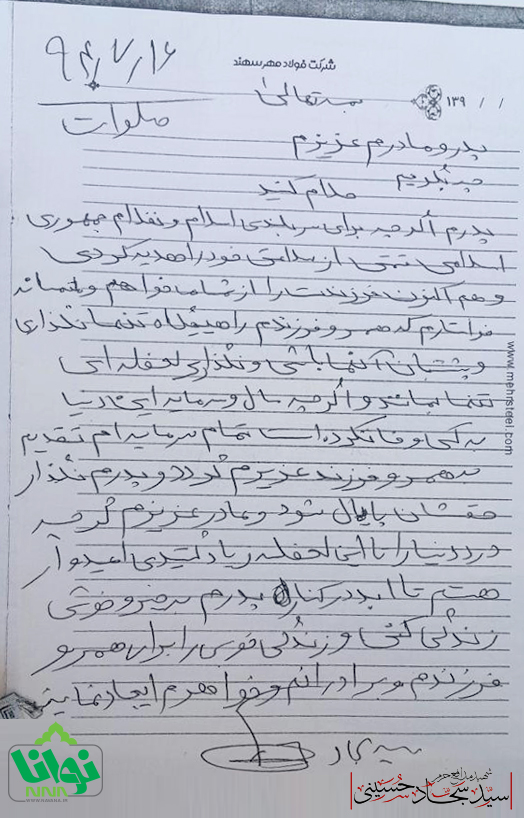 شرکت فولاد مهر سهند
۹۴/۷/۱۶
بسمه تعالی
۱۳۹ / /
صلوات
پدر و مادرم عزیزم
چه بگویم
سلام کنید
پدرم اگر چه برای سربلندی اسلام و نظام جمهوری
اسلامی نیمی از سلامتی خود را هدیه کردی
و هم اکنون فرزندت را از شما می‌خواهم
خواستارم که همسر و فرزندم را هیچگاه تنها نگذاری
و پشتیبان آنها باشی و نگذاری لحظه ای
تنها بمانند و اگر چه مال و سرمایه این دنیا
به کسی وفا نکرده است تمام سرمایه ام تقدیم
به همسر و فرزند عزیزم گردد و پدرم نگذار
حقشان پایمال شود و مادر عزیزم گر چه
درد دنیا را تا این لحظه زیاد کشیدی امیدوار
هستم تا ابد در کنار پدرم به خیر و خوشی
زندگی کنی و زندگی خوبی را برای همسر و
فرزندم و برادرانم و خواهرم ایجاد نمایید
سید سجاد
www.mehrsteel.com
نوانا
WWW.NAVANA.IR
شهید مدافع حرم
سید سجاد حسینی